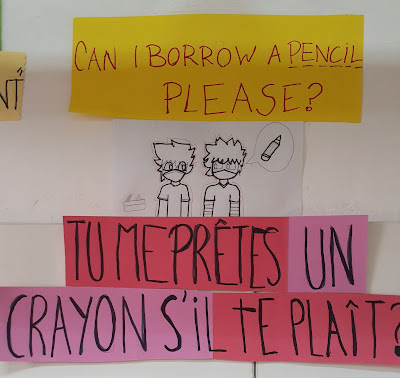 CAN I BORROW A PENCIL
PLEASE?
NT
TU ME PRÊTES UN
CRAYON S'IL TE PLAÎT?